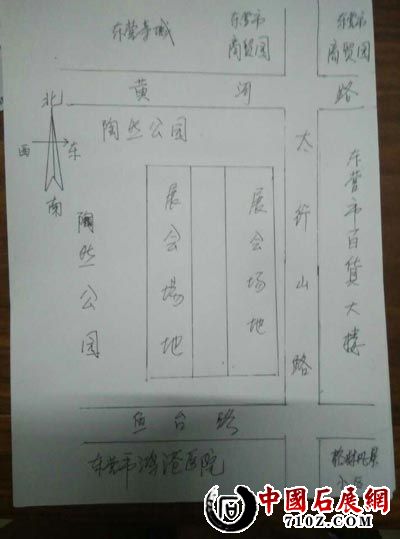 东营市
商贸园
东营市
商贸园
黄河路
北
西
东
南
陶然公园
陶然公园
展会場地
展会场地
太行山路
东营市百貨大楼
鱼台路
东营市鸿港医院
中國石展網
7102.COM